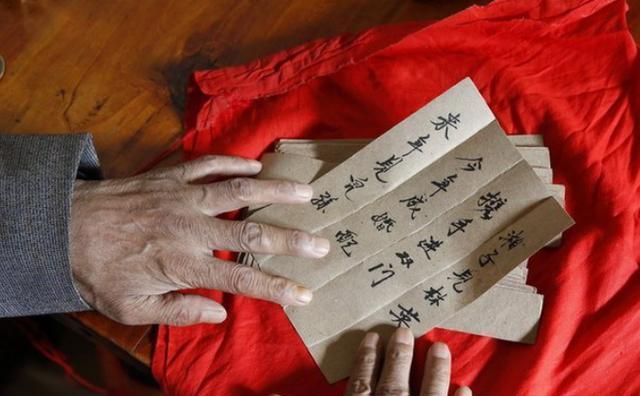 子见英
携手进双门
今年成婚配
来年见儿孙